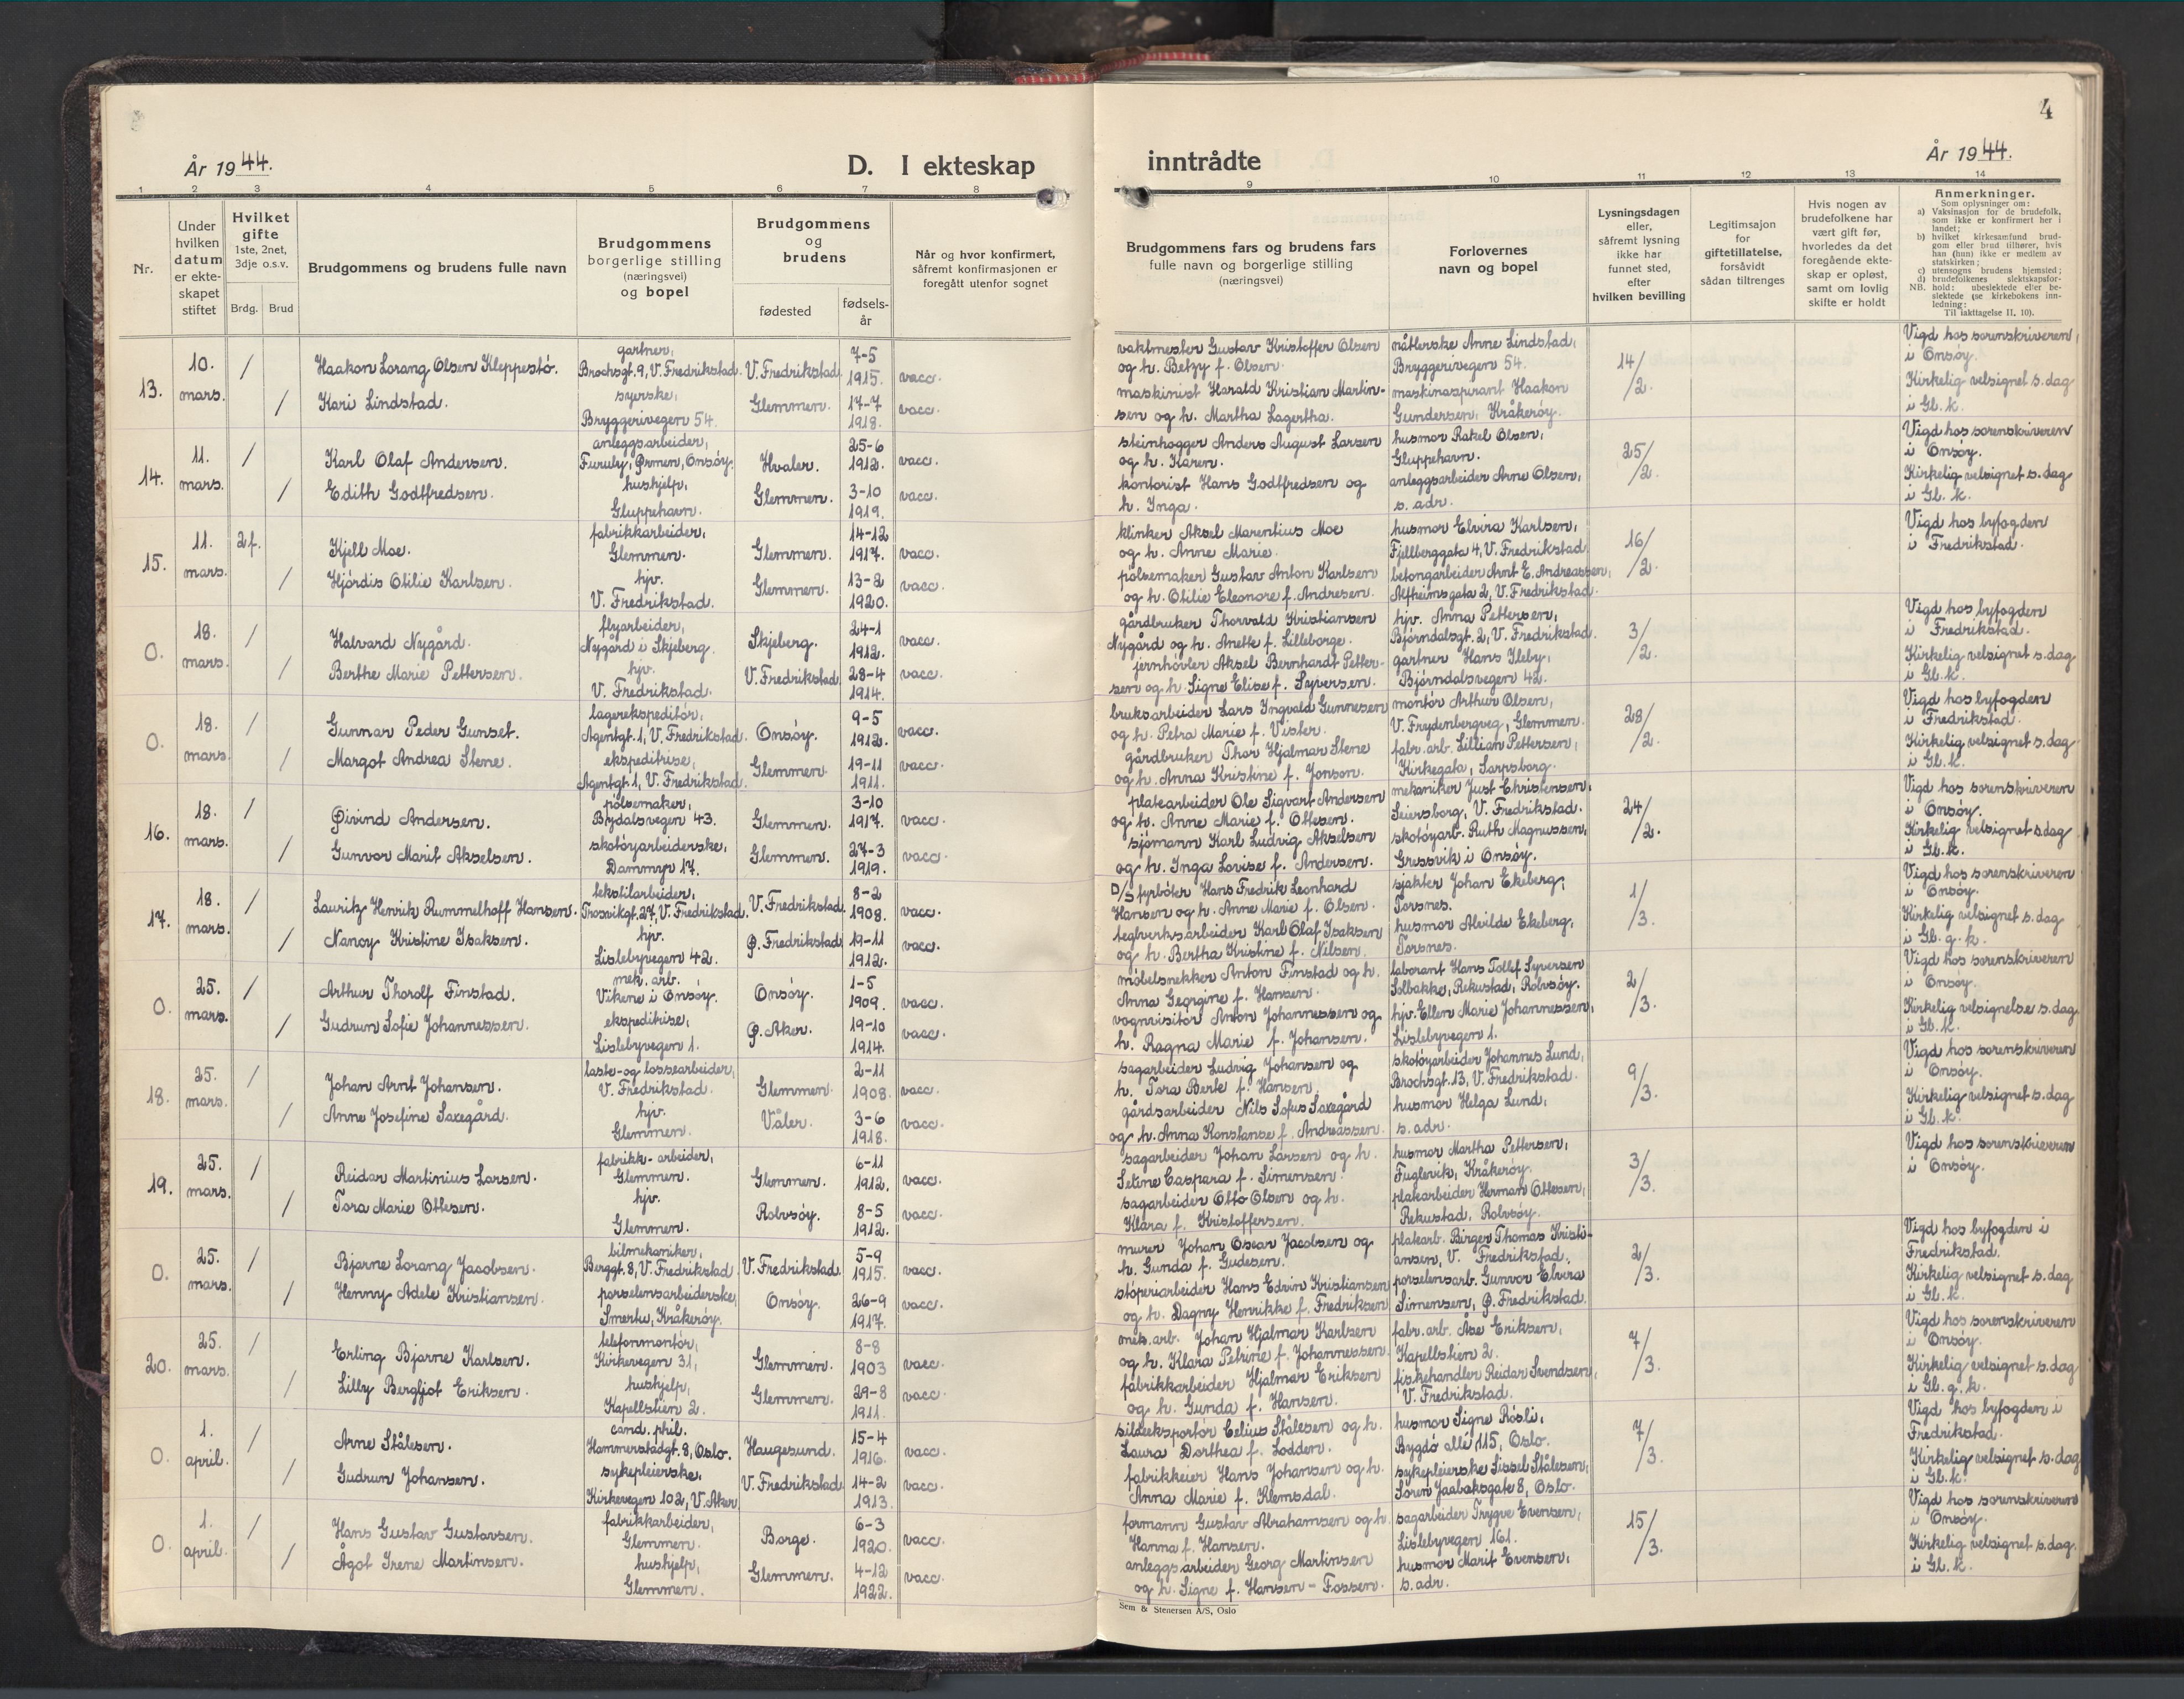 4
År 1944.
D. I ekteskap
inntrådte
År 1944.
1 2 3 4 5 6 7 8 9 10 11 12 13 14
Nr.
Under hvilken datum er ekte-skapet stiftet
Hvilket gifte
1ste, 2net, 3dje o.s.v.
Brdg. Brud
Brudgommens og brudens fulle navn
Brudgommens borgerlige stilling (næringsvei) og bopel
Brudgommens og brudens
fødested
fødsels-år
Når og hvor konfirmert, såfremt konfirmasjonen er foregått utenfor sognet
Brudgommens fars og brudens fars fulle navn og borgerlige stilling (næringsvei)
Forlovernes navn og bopel
Lysningsdagen eller, såfremt lysning ikke har funnet sted, efter hvilken bevilling
Legitimsajon for giftetillatelse, forsåvidt sådan tiltrenges
Hvis nogen av brudefolkene har vært gift før, hvorledes da det foregående ekte-skap er opløst, samt om lovlig skifte er holdt
Anmerkninger.
Som oplysninger om:
a) Vaksinasjon for de brudefolk, som ikke er konfirmert her i landet;
b) hvilket kirkesamfund brud-gom eller brud tilhører, hvis han (hun) ikke er medlem av statskirken;
c) utensogns brudens hjemsted;
d) brudefolkenes slektskapsfor-hold: ubeslektede eller be-slektede (se kirkebokens inn-ledning:
NB. Til iakttagelse II, 10).
13. 10. mars. / Haakon Lorang Olsen Kleppestö. gartner, Brochsgt. 9, V. Fredrikstad. V. Fredrikstad 7-5 1915. vacc.
/ Kari Lindstad. syerske, Bryggerivegen 54. Glemmen. 17-7 1918. vacc.
vaktmester Gustav Kristoffer Olsen og h. Betzy f. Olsen.
maskinist Harald Kristian Martin-sen og h. Martha Lagertha.
nåtlerske Anne Lindstad, Bryggerivegen 54.
maskinaspirant Haakon Gundersen, Kråkeröy.
14/2.
Vigd hos sorenskriveren, i Onsöy. Kirkelig velsignet s. dag i Gl. k.
14. 11. mars. / Karl Olaf Andersen. anleggsarbeider, Furuly, Ørmen, Onsöy. Hvaler. 25-6 1912. vacc.
/ Edith Godtfredsen. hushjelp, Gluppehavn. Glemmen. 3-10 1919. vacc.
steinhogger Anders August Larsen og h. Karen.
kontorist Hans Godtfredsen og h. Inga.
husmor Rakel Olsen, Gluppehavn.
anleggsarbeider Arne Olsen, s. adr.
25/2.
Vigd hos sorenskriveren i Onsöy. Kirkelig velsignet s. dag i Gl. k.
15. 11. mars. 2f. Kjell Moe. fabrikkarbeider, Glemmen. Glemmen. 14-12 1917. vacc.
/ Hjördis Otilie Karlsen. hjv. V. Fredrikstad. Glemmen. 13-2 1920. vacc.
klinker Aksel Marentius Moe og h. Anne Marie.
pölsemaker Gustav Anton Karlsen og h. Otilie Eleonore f. Andresen.
husmor Elvira Karlsen, Fjellberggata 4, V. Fredrikstad.
betongarbeider Arnt E. Andreassen, Alfheimsgata 2, V. Fredrikstad.
16/2.
Vigd hos byfogden i Fredrikstad.
0. 18. mars. / Halvard Nygård. flyarbeider, Nygård i Skjeberg. Skjeberg. 24-1 1912. vacc.
/ Berthe Marie Pettersen. hjv. V. Fredrikstad. V. Fredrikstad 28-4 1914. vacc.
gårdbruker Thorvald Kristiansen Nygård og h. Anette f. Lilleborge.
jernhövler Aksel Bernhardt Petter-sen og h. Signe Elise f. Syversen.
hjv. Anna Pettersen, Björndalsgt. 2, V. Fredrikstad.
gartner Hans Ileby, Björndalsvegen 42.
3/2.
Vigd hos byfogden i Fredrikstad. Kirkelig velsignet s. dag i Gl. k.
0. 18. mars. / Gunnar Peder Gunset. lagerekspeditör, Agentgt. 1, V. Fredrikstad. Onsöy. 9-5 1912. vacc.
/ Margot Andrea Stene. ekspeditrise, Agentgt. 1, V. Fredrikstad. Glemmen. 19-11 1911. vacc.
bruksarbeider Lars Ingvald Gunnesen og h. Petra Marie f. Vister.
gårdbruker Thor Hjalmar Stene og h. Anna Kristine f. Jonson.
montör Arthur Olsen, V. Frydenbergveg, Glemmen.
fabr. arb. Lillian Pettersen, Kirkegata, Sarpsborg.
28/2.
Vigd hos byfogden i Fredrikstad. Kirkelig velsignet s. dag i Gl. k.
16. 18. mars. / Øivind Andersen. pölsemaker, Brydalsvegen 43. Glemmen. 3-10 1917. vacc.
/ Gunvor Marit Akselsen. skotöyarbeiderske, Dammyr 17. Glemmen. 27-3 1919. vacc.
platearbeider Ole Sigvart Andersen og h. Anne Marie f. Ottesen.
sjömann Karl Ludvig Akselsen og h. Inga Lovise f. Andersen.
mekaniker Just Christensen, Seiersborg, V. Fredrikstad.
skotöyarb. Ruth Magnussen, Gressvik i Onsöy.
24/2.
Vigd hos sorenskriveren i Onsöy. Kirkelig velsignet s. dag i Gl. k.
17. 18. mars. / Lauritz Henrik Rummelhoff Hansen. tekstilarbeider, Trosvikgt. 27, V. Fredrikstad. V. Fredrikstad 8-2 1908. vacc.
/ Nancy Kristine Isaksen. hjv. Lislebyvegen 42. Ø. Fredrikstad 19-11 1912. vacc.
D/S fyrböter Hans Fredrik Leonhard Hansen og h. Anne Marie f. Olsen.
teglverksarbeider Karl Olaf Isaksen og h. Bertha Kristine f. Nilsen.
sjakter Johan Ekeberg, Torsnes.
husmor Alvilde Ekeberg, Torsnes.
1/3.
Vigd hos sorenskriveren i Onsöy. Kirkelig velsignet s. dag i Gl. g. k.
0. 25. mars. / Arthur Thorolf Finstad. mek. arb. Vikene i Onsöy. Onsöy. 1-5 1909. vacc.
/ Gudrun Sofie Johannessen. ekspeditrise, Lislebyvegen 1. Ø. Aker. 19-10 1914. vacc.
möbelsnekker Anton Finstad og h. Anna Georgine f. Hansen.
vognvisitör Anton Johannessen og h. Ragna Marie f. Johansen.
laborant Hans Tollef Syversen Solbakke, Rekustad, Rolvsöy.
hjv. Ellen Marie Johannessen, Lislebyvegen 1.
2/3.
Vigd hos sorenskriveren i Onsöy. Kirkelig velsignelse s. dag i Gl. k.
18. 25. mars. / Johan Arnt Johansen. laste- og lossearbeider, V. Fredrikstad. Glemmen. 2-11 1908. vacc.
/ Anne Josefine Saxegård. hjv. Glemmen. Våler. 3-6 1918. vacc.
sagarbeider Ludvig Johansen og h. Tora Berte f. Hansen.
gårdsarbeider Nils Sofus Saxegård og h. Anna Konstanse f. Andreassen.
skotöyarbeider Johannes Lund, Brochsgt. 13, V. Fredrikstad.
husmor Helga Lund, s. adr.
9/3.
Vigd hos sorenskriveren i Onsöy. Kirkelig velsignet s. dag i Gl. k.
19. 25. mars. / Reidar Martinius Larsen. fabrikk-arbeider, Glemmen. Glemmen. 6-11 1912. vacc.
/ Tora Marie Ottesen. hjv. Glemmen. Rolvsöy. 8-5 1912. vacc.
sagarbeider Johan Larsen og h. Setine Caspara f. Simensen.
sagarbeider Otto Olsen og h. Klara f. Kristoffersen.
husmor Martha Pettersen, Fuglevik, Kråkeröy.
platearbeider Herman Ottesen, Rekustad, Rolvsöy.
3/3.
Vigd hos sorenskriveren i Onsöy.
0. 25. mars. / Bjarne Lorang Jacobsen. bilmekaniker, Berggt. 8, V. Fredrikstad. V. Fredrikstad. 5-9 1915. vacc.
/ Henny Adele Kristiansen. porselensarbeiderske, Smertu, Kråkeröy. Onsöy. 26-9 1917. vacc.
murer Johan Oscar Jacobsen og h. Gunda f. Gudesen.
støperiarbeider Hans Edvin Kristiansen og h. Dagny Henrikke f. Fredriksen
platearb. Birger Thomas Kristi-ansen, V. Fredrikstad.
porselensarb. Gunvor Elvira Simensen, Ø. Fredrikstad.
2/3.
Vigd hos byfogden i Fredrikstad. Kirkelig velsignet s. dag i Gl. k.
20. 25. mars. / Erling Bjarne Karlsen. telefonmontör, Kirkevegen 31, Glemmen. 8-8 1903 vacc.
/ Lilly Bergljot Eriksen. hushjelp, Kapellstien 2. Glemmen. 29-8 1911. vacc.
mek. arb. Johan Hjalmar Karlsen og h. Klara Petrine f. Johannessen.
fabrikkarbeider Hjalmar Eriksen og h. Gunda f. Hansen.
fabr. arb. Åse Eriksen, Kapellstien 2.
fiskehandler Reidar Svendsen, V. Fredrikstad.
7/3.
Vigd hos sorenskriveren i Onsöy. Kirkelig velsignet s. dag i Gl. g. k.
0. 1. april. / Arne Stålesen. cand. phil. Hammerstadgt. 8, Oslo. Haugesund. 15-4 1916. vacc.
/ Gudrun Johansen. sykepleierske, Kirkevegen 102, V. Aker V. Fredrikstad. 14-2 1913. vacc.
sildeeksportör Celius Stålesen og h. Laura Dorthea f. Lodden.
fabrikkeier Hans Johansen og h. Anna Marie f. Klemsdal.
husmor Signe Rösli, Bygdö allé 115, Oslo.
sykepleierske Sissel Stålesen, Sören Jaabæksgate 8, Oslo.
7/3.
Vigd hos byfogden i Fredrikstad. Kirkelig velsignet s. dag i Gl. k.
0. 1. april. / Hans Gustav Gustavsen. fabrikkarbeider, Glemmen. Borge. 6-3 1920. vacc.
/ Ågot Irene Martinsen. hushjelp, Glemmen. Glemmen. 4-12 1922. vacc.
formann Gustav Abrahamsen og h. Hanna f. Hansen.
anleggsarbeider Georg Martinsen og h. Signe f. Hansen - Fossen.
sagarbeider Trygve Evensen, Lislebyvegen 161.
husmor Marit Evensen, s. adr.
15/3.
Vigd hos sorenskriveren i Onsöy. Kirkelig velsignet s. dag. i Gl. k.
Sem & Stenersen A/S, Oslo